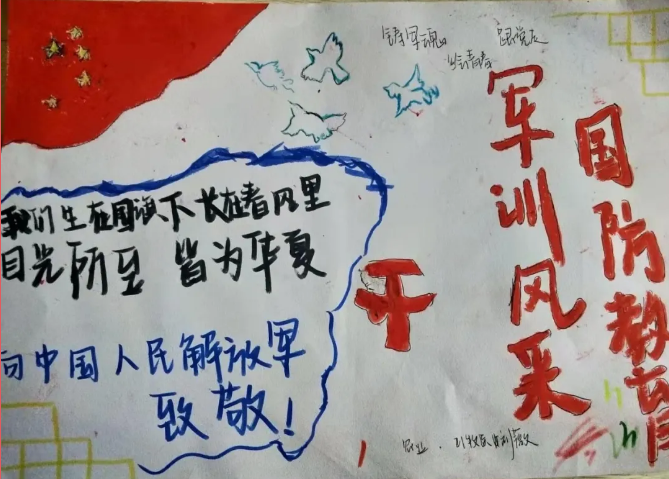 铸军魂 跟党走
绘青春
国防教育
军训风采
我们生在国旗下 长在春风里
目光所至 皆为华夏
向中国人民解放军
致敬!